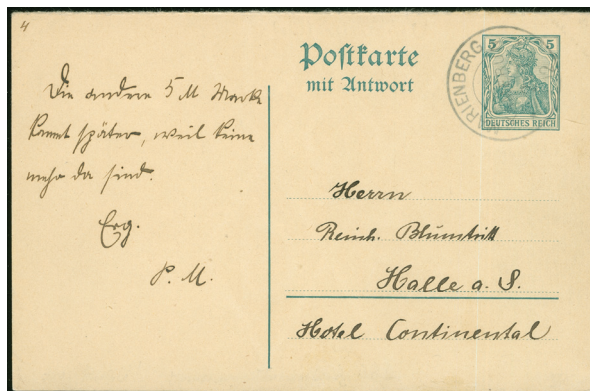 4
Die andere 5 M Marke
kommt später, weil keine
mehr da sind.
Erg.
P. M.
Postkarte
mit Antwort
RIENBERG
5 5
DEUTSCHES REICH
Herrn
Reinh. Blumtritt
Halle a. S.
Hotel Continental